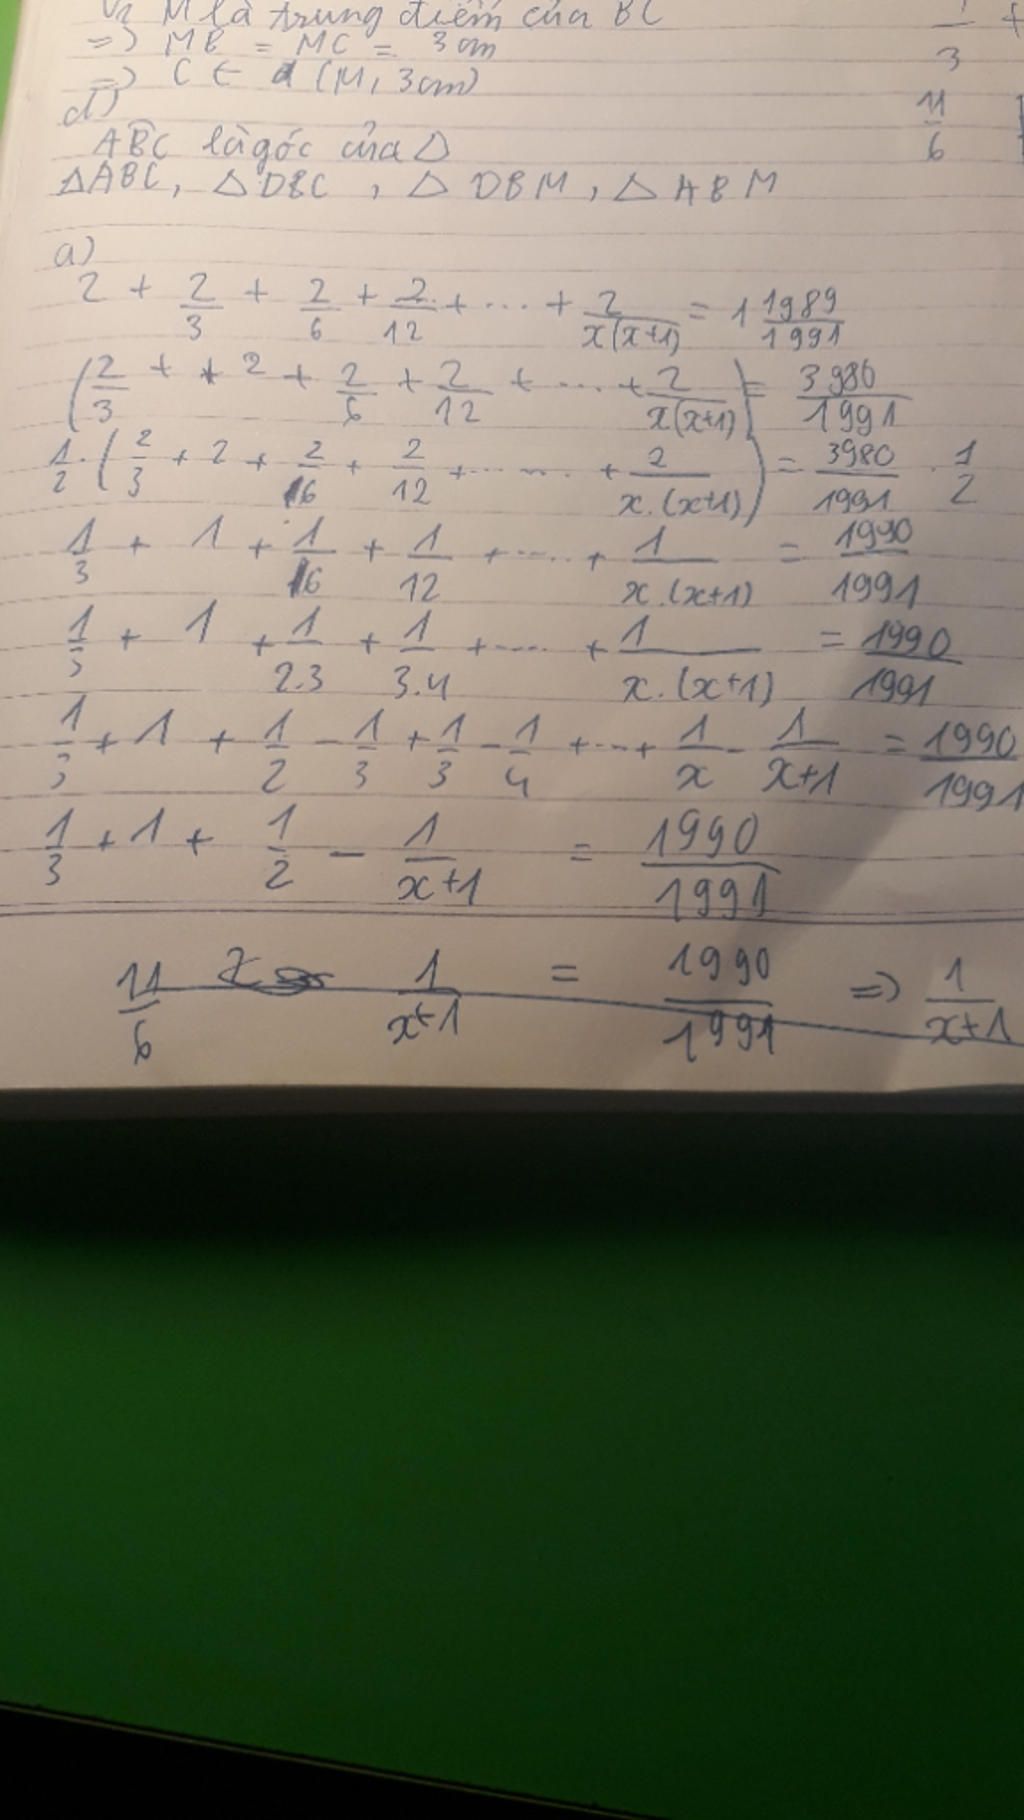 M là trung điểm của BC
=> MB = MC = 3cm
=> C ∈ d (M, 3cm)
3
d)
11/6
ABC là góc của Δ
ΔABC, ΔDBC, ΔDBM, ΔABM
a)
2 + 2/3 + 2/6 + 2/12 + ... + 2/x(x+1) = 1 1989/1991
(2/3 + + 2 + 2/6 + 2/12 + ... + 2/x(x+1)) = 3980/1991
1/2 . (2/3 + 2 + 2/6 + 2/12 + ...... + 2/x.(x+1)) = 3980/1991 . 1/2
1/3 + 1 + 1/6 + 1/12 + .... + 1/x.(x+1) = 1990/1991
1/3 + 1 + 1/2.3 + 1/3.4 + .... + 1/x.(x+1) = 1990/1991
1/3 + 1 + 1/2 - 1/3 + 1/3 - 1/4 + ... + 1/x - 1/x+1 = 1990/1991
1/3 + 1 + 1/2 - 1/x+1 = 1990/1991
11/6 1/x+1 = 1990/1991 => 1/x+1